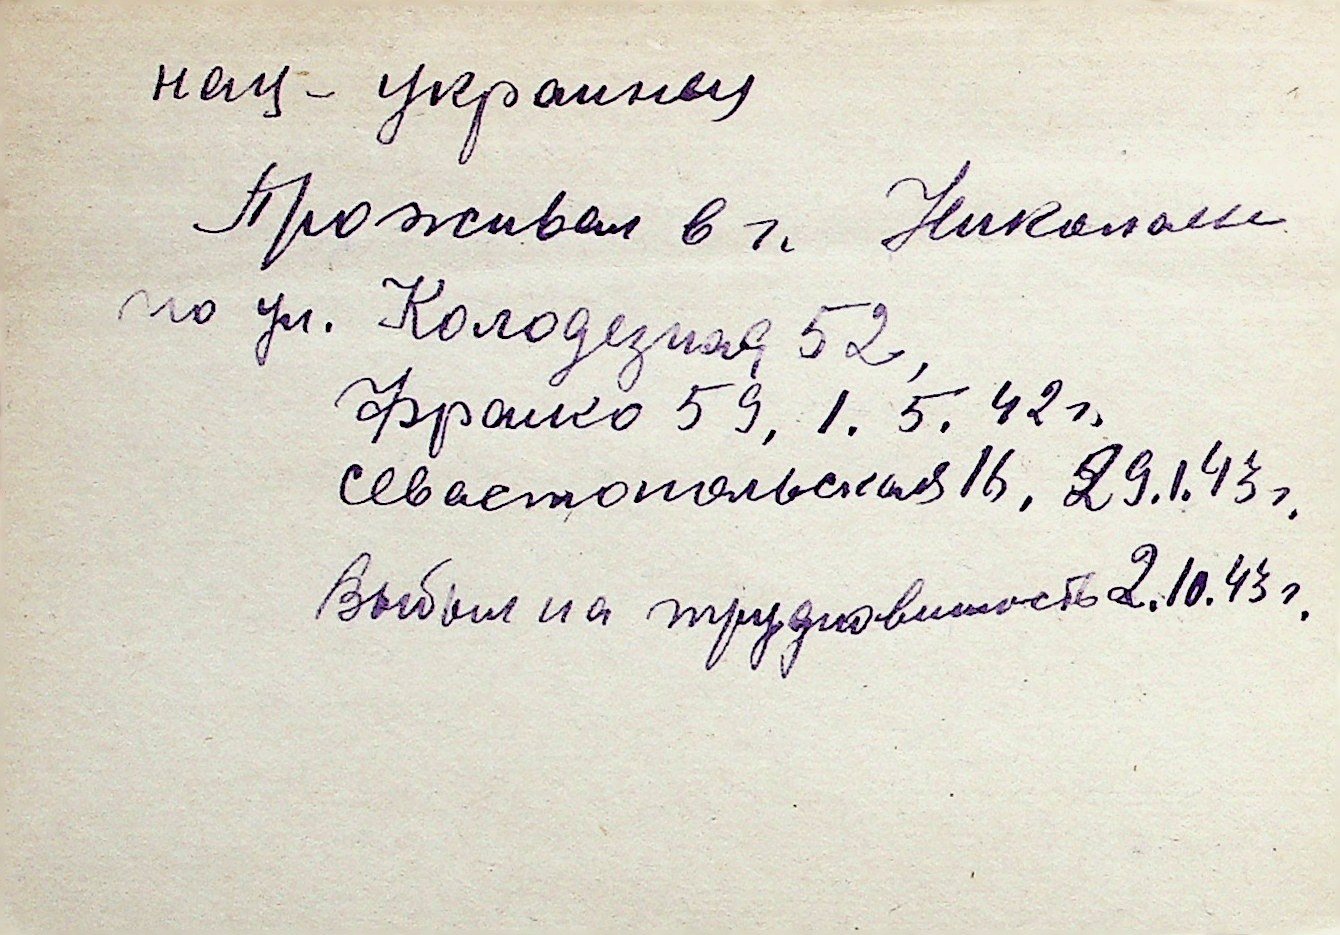 нац - украинец
Проживал в г. Николаеве
по ул. Колодезная 52,
Франко 59, 1. 5. 42 г.
Севастопольская 16, 29.1.43 г.
Выбыл на трудповинность 2.10.43 г.